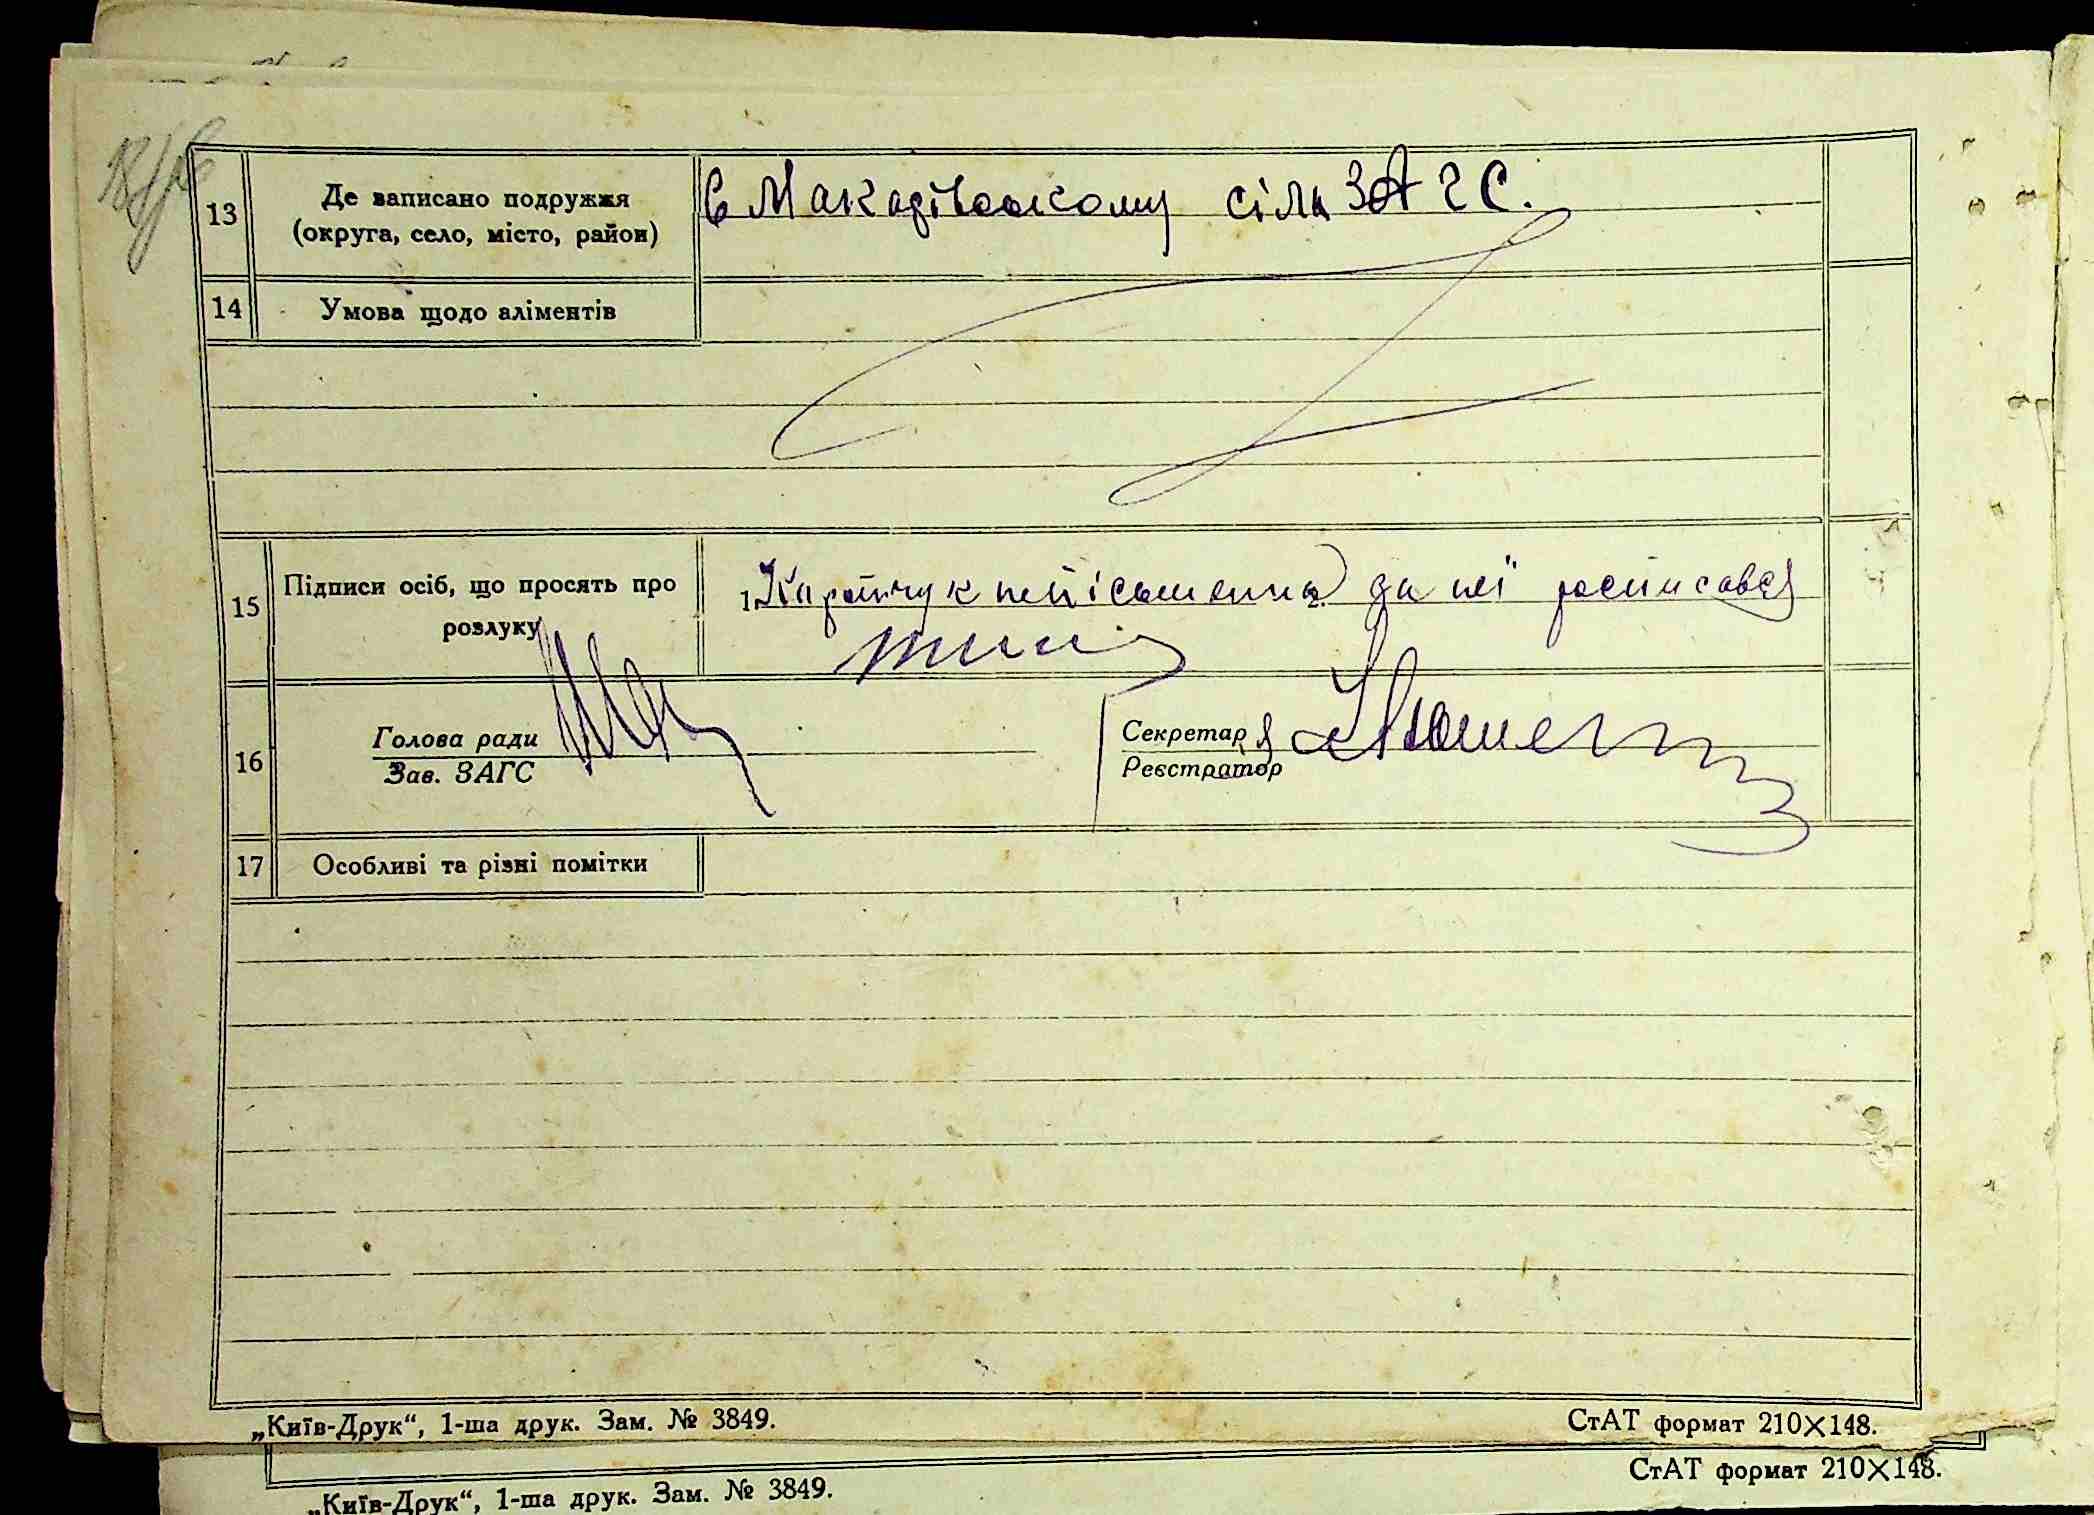 13
Де записано подружжя
(округа, село, місто, район)
в Макарівському сільЗАГС.
14
Умова щодо аліментів
15
Підписи осіб, що просять про
розлуку
1. за неї росписавсь
16
Голова ради
Зав. ЗАГС
Секретар
Реєстратор
17
Особливі та різні помітки
„Київ-Друк“, 1-ша друк. Зам. № 3849.
СтАТ формат 210×148.
СтАТ формат 210×148.
„Київ-Друк“, 1-ша друк. Зам. № 3849.